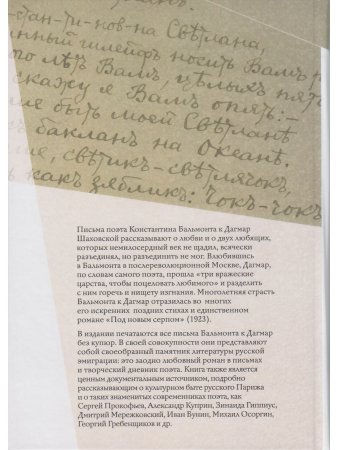 -стан-ти-нов-на Свѣтлана,
шлейфъ носитъ Вамъ
лѣтъ Вамъ, цѣлыхъ пять
скажу я Вамъ опять:-
быть моей Свѣтланѣ
бакланъ на Океанѣ.
свѣтикъ-свѣтлячокъ,
какъ зябликъ: Чокъ-чокъ
Письма поэта Константина Бальмонта к Дагмар
Шаховской рассказывают о любви и о двух любящих,
которых немилосердный век не щадил, всячески
разъединял, но разъединить не мог. Влюбившись
в Бальмонта в послереволюционной Москве, Дагмар,
по словам самого поэта, прошла «три вражеские
царства, чтобы поцеловать любимого» и разделить
с ним горечь и нищету изгнания. Многолетняя страсть
Бальмонта к Дагмар отразилась во многих
его искренних поздних стихах и единственном
романе «Под новым серпом» (1923).
В издании печатаются все письма Бальмонта к Дагмар
без купюр. В своей совокупности они представляют
собой своеобразный памятник литературы русской
эмиграции: это заодно любовный роман в письмах
и творческий дневник поэта. Книга также является
ценным документальным источником, подробно
рассказывающим о культурном быте русского Парижа
и о таких знаменитых современниках поэта, как
Сергей Прокофьев, Александр Куприн, Зинаида Гиппиус,
Дмитрий Мережковский, Иван Бунин, Михаил Осоргин,
Георгий Гребенщиков и др.